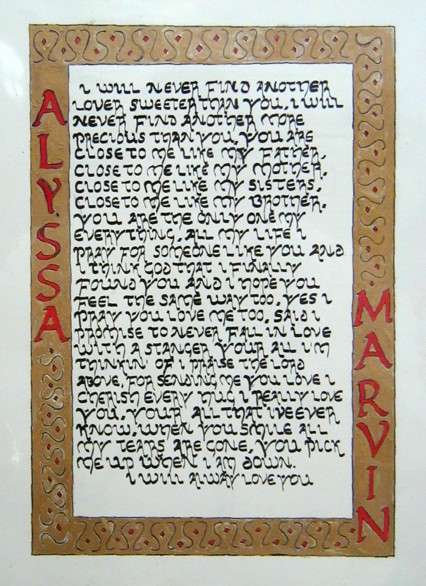 ALYSSA
I WILL NEVER FIND ANOTHER
LOVER SWEETER THAN YOU, I WILL
NEVER FIND ANOTHER MORE
PRECIOUS THAN YOU, YOU ARE
CLOSE TO ME LIKE MY FATHER,
CLOSE TO ME LIKE MY MOTHER,
CLOSE TO ME LIKE MY SISTERS,
CLOSE TO ME LIKE MY BROTHER,
YOU ARE THE ONLY ONE MY
EVERYTHING, ALL MY LIFE I
PRAY FOR SOMEONE LIKE YOU AND
I THINK GOD THAT I FINALLY
FOUND YOU AND I HOPE YOU
FEEL THE SAME WAY TOO, YES I
PRAY YOU LOVE ME TOO, SAID I
PROMISE TO NEVER FALL IN LOVE
WITH A STANGER YOUR ALL I'M
THINKIN' OF I PRAISE THE LORD
ABOVE, FOR SENDING ME YOU LOVE I
CHERISH EVERY HUG I REALLY LOVE
YOU, YOUR ALL THAT I'VE EVER
KNOW, WHEN YOU SMILE ALL
MY TEARS ARE GONE, YOU PICK
ME UP WHEN I AM DOWN.
I WILL ALWAY LOVE YOU
MARVIN